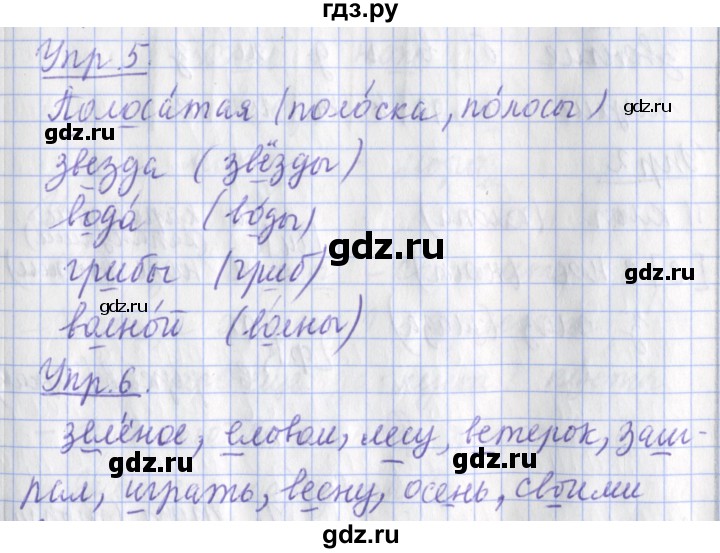 гдз.ру
Упр.5.
Полоса́тая (поло́ска, по́лосы)
gdz.ru
gdz.ru
звезда (звёзды)
вода́ (во́ды)
gdz.ru
грибы (гриб)
gdz.ru
gdz.ru
волно́й (во́лны)
Упр.6.
зелёное, еловом, лесу, ветерок, заиг-
gdz.ru
gdz.ru
рал, играть, весну, осень, своими
gdz.ru